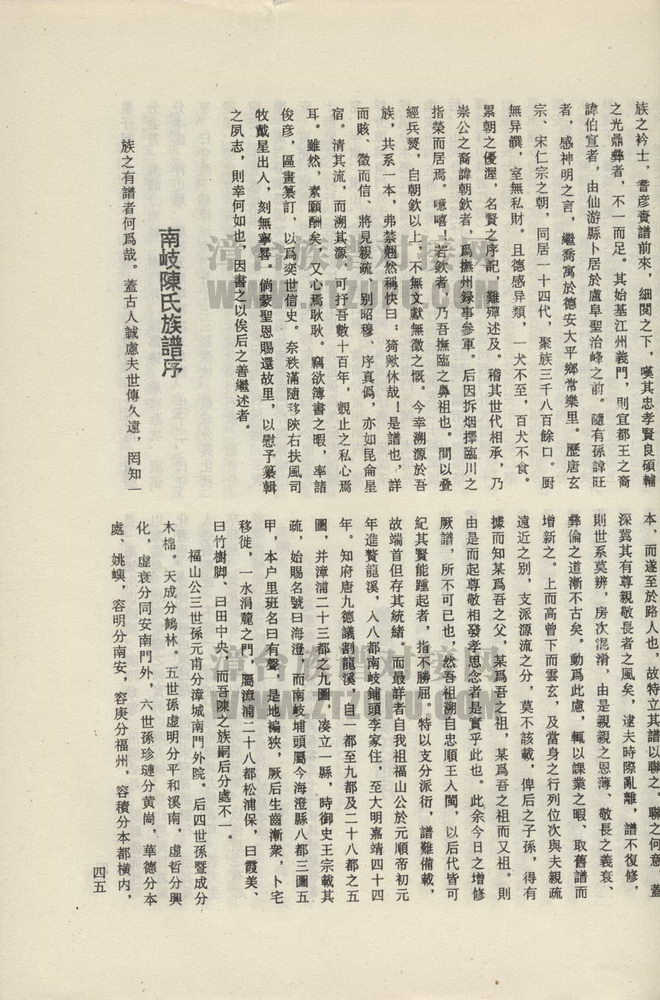 族之衿士，耆彦賫譜前來，細閲之下，嘆其忠孝賢良碩輔
之光鼎彝者，不一而足。其始基江州義門，則宜都王之裔
諱伯宣者，由仙游縣卜居於盧阜聖治峰之前。隨有孫諱旺
者，感神明之言，繼喬寓於德安大平鄉常樂里。歷唐玄
宗、宋仁宗之朝，同居一十四代，聚族三千八百餘口。厨
無异饌，室無私財。且德感异類，一犬不至，百犬不食。
累朝之優渥，名賢之序記，難殫述及。稽其世代相承，乃
崇公之裔諱朝欽者，爲撫州録事參軍。后因拆烟擇臨川之
指榮而居焉。噫嘻，若欽者，乃吾撫臨之鼻祖也。間以叠
經兵燹，自朝欽以上，不無文獻無徵之慨。今幸溯源於吾
族，共系一本，弗禁翹然稱快曰：猗歟休哉！是譜也，詳
而賅、徵而信、將見親疏，别昭穆、序真僞，亦如昆侖星
宿。清其流，而溯其源，可抒吾數十百年，覯止之私心焉
耳。雖然，素願酬矣，又心焉耿耿。竊欲簿書之暇，率諸
俊彦，區畫纂訂，以爲奕世信史。奈秩滿隨移陝右扶風司
牧戴星出入，刻無寧晷。倘蒙聖恩賜還故里，以慰予纂輯
之夙志，則幸何如也，因書之以俟后之善繼述者。
南岐陳氏族譜序
族之有譜者何爲哉。蓋古人誠慮夫世傳久遠，罔知一
本，而遂至於路人也，故特立其譜以聯之。聯之何意，蓋
深冀其有尊親敬長者之風矣，逮夫時際亂離，譜不復修，
則世系莫辨，房次混淆，由是親親之恩薄、敬長之義衰、
彝倫之道漸不古矣。動爲此慮，輒以課業之暇、取舊譜而
增新之。上而高曾下而雲玄，及當身之行列位次與夫親疏
遠近之别，支派源流之分，莫不該載，俾后之子孫，得有
據而知某爲吾之父，某爲吾之祖，某爲吾之祖而又祖。則
由是而起尊敬相發孝思念者是實乎此也。此余今日之增修
厥譜，所不可已也，然吾祖溯自忠順王入閩，以后代皆可
紀其賢能踵起者，指不勝屈。特以支分派衍，譜難備載，
故端首但存其統緒，而最詳者自我祖福山公於元順帝初元
年進贅龍溪，入八都南岐鋪頭李家住，至大明嘉靖四十四
年。知府唐九德議割龍溪，自一都至九都及二十八都之五
圖，并漳浦二十三都之九圖，凑立一縣，時御史王宗載其
疏，始賜名號曰海澄，而南岐埔頭屬今海澄縣八都三圖五
甲，本户里班名曰有聲，是地褊狹，厥后生齒漸衆，卜宅
移徙，一水涓麓之門，屬漳浦二十八都松浦保，曰霞美、
曰竹樹脚、曰田中央，而吾陳之族嗣后分處不一。
福山公三世孫元甫分漳城南門外院。后四世孫暨成分
木棉。天成分鶴林。五世孫虚明分平和溪南，虚哲分興
化，虚衰分同安南門外，六世孫珍璉分黄崗，華德分本
處、姚嶼，容明分南安，容庚分福州，容積分本都横内，
四五
漳台族谱对接网
WWW.ZTZUPU.COM
漳台族谱对接网
WWW.ZTZUPU.COM